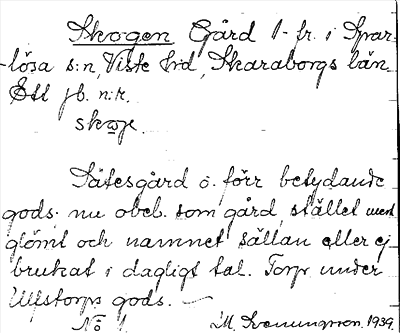 Skogen Gård 1- fr. i Spar-
-lösa s:n, Viste h:d, Skaraborgs län.
Ett jb. n:r.
skωgε.
Sätesgård o. förr betydande
gods. nu obeb. som gård, stället mest
glömt och namnet sällan eller ej
brukat i dagligt tal. Torp under
Ulstorps gods.
No 1. M. Svenungsson. 1939.